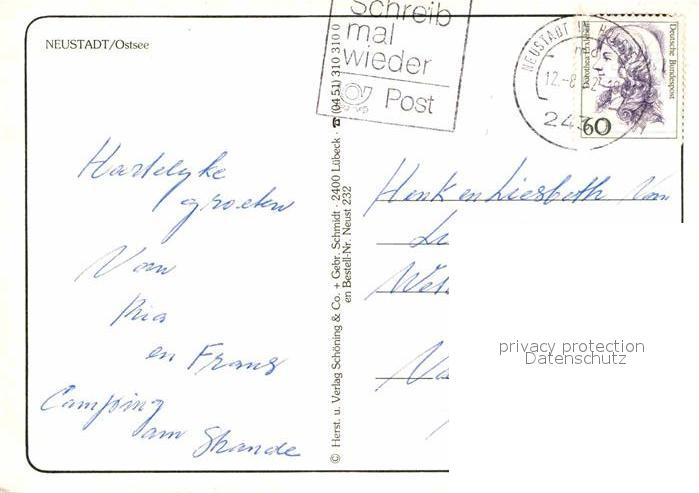 NEUSTADT/Ostsee
Schreib
mal
wieder
Post
NEUSTADT
12.-8
243
Dorothea Erxleben
Deutsche Bundespost
60
Hartelyke
groeten
Van
Ria
en Frans
Camping
am Strande
© Herst. u. Verlag Schöning & Co. + Gebr. Schmidt · 2400 Lübeck · ☎ (0451) 310 310 0
en Bestell-Nr. Neust 232
Henk en Liesbeth Van
privacy protection
Datenschutz